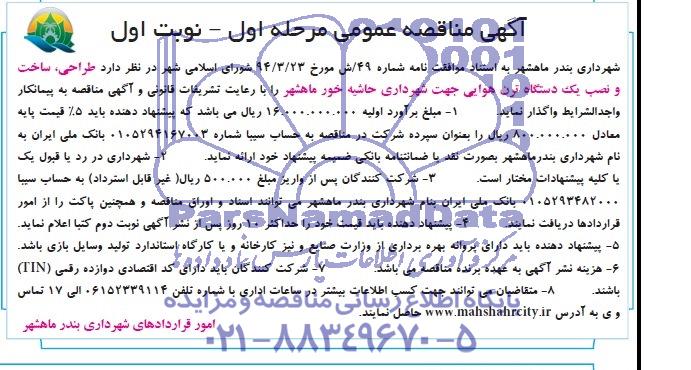 آگهی مناقصه عمومی مرحله اول - نوبت اول
شهرداری بندر ماهشهر به استناد موافقت نامه شماره ۴۹/ش مورخ ۹۴/۳/۲۳ شورای اسلامی شهر در نظر دارد طراحی، ساخت
و نصب یک دستگاه ترن هوایی جهت شهرداری حاشیه خور ماهشهر را با رعایت تشریفات قانونی و آگهی مناقصه به پیمانکار
واجدالشرایط واگذار نماید. ۱- مبلغ برآورد اولیه ۱۶.۰۰۰.۰۰۰.۰۰۰ ریال می باشد که پیشنهاد دهنده باید ۵٪ قیمت پایه
معادل ۸۰۰.۰۰۰.۰۰۰ ریال را بعنوان سپرده شرکت در مناقصه به حساب سیبا شماره ۰۱۰۵۲۹۴۱۶۷۰۰۳ بانک ملی ایران به
نام شهرداری بندرماهشهر بصورت نقد یا ضمانتنامه بانکی ضمیمه پیشنهاد خود ارائه نماید. ۲- شهرداری در رد یا قبول یک
یا کلیه پیشنهادات مختار است. ۳- شرکت کنندگان پس از واریز مبلغ ۵۰۰.۰۰۰ ریال( غیر قابل استرداد) به حساب سیبا
۰۱۰۵۲۹۳۴۸۲۰۰۰ بانک ملی ایران بنام شهرداری بندر ماهشهر می توانند اسناد و اوراق مناقصه و همچنین پاکت را از امور
قراردادها دریافت نمایند. ۴- پیشنهاد دهنده باید قیمت خود را حداکثر ۱۰ روز پس از نشر آگهی نوبت دوم کتبا اعلام نماید.
۵- پیشنهاد دهنده باید دارای پروانه بهره برداری از وزارت صنایع و نیز کارخانه و یا کارگاه استاندارد تولید وسایل بازی باشد.
۶- هزینه نشر آگهی به عهده برنده مناقصه می باشد. ۷- شرکت کنندگان باید دارای کد اقتصادی دوازده رقمی (TIN)
باشند. ۸- متقاضیان می توانند جهت کسب اطلاعات بیشتر در ساعات اداری با شماره تلفن ۰۶۱۵۲۳۳۹۱۱۴ الی ۱۷ تماس
و ی به آدرس www.mahshahrcity.ir حاصل نمایند.
امور قراردادهای شهرداری بندر ماهشهر
ParsNamadData
مرکز فرآوری اطلاعات پارس نماد داده ها
پایگاه اطلاع رسانی مناقصه و مزایده
۰۲۱-۸۸۳۴۹۶۷۰-۵